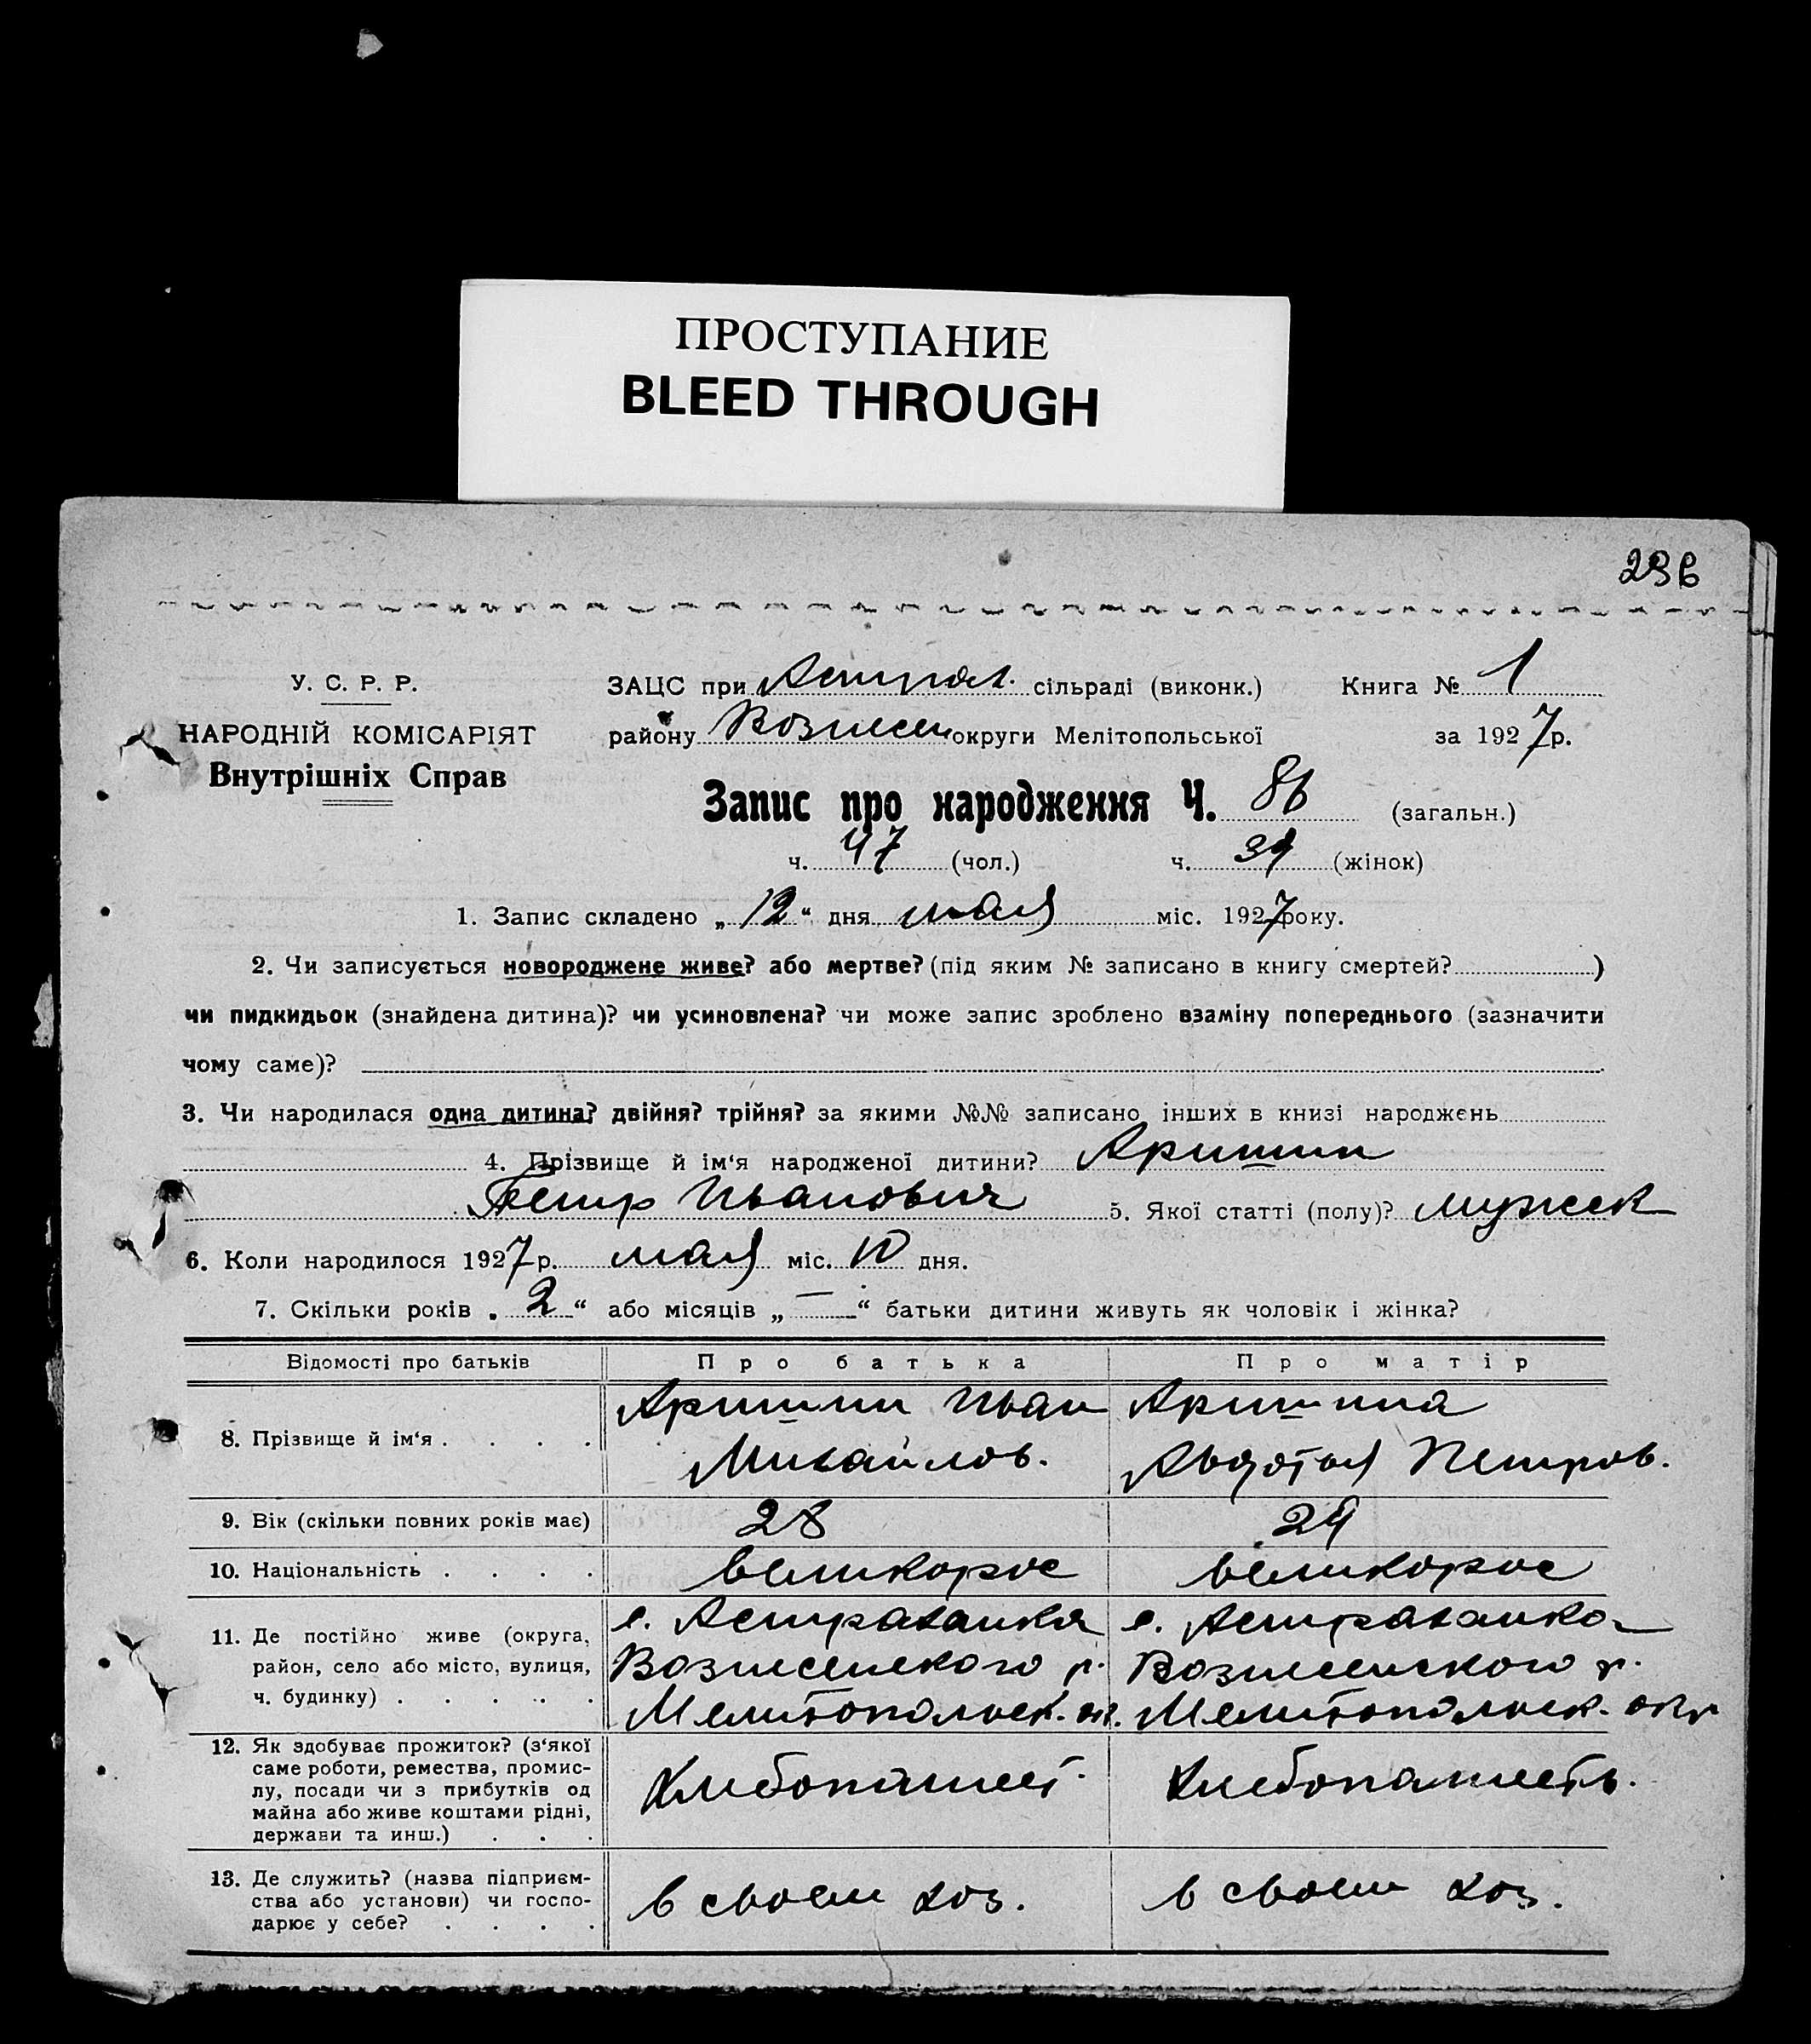 ПРОСТУПАНИЕ
BLEED THROUGH
236
У. С. Р. Р.
НАРОДНІЙ КОМІСАРІЯТ
Внутрішніх Справ
ЗАЦС при Астрах. сільраді (виконк.) Книга № 1
району Вознесен округи Мелітопольської за 1927 р.
Запис про народження Ч. 86 (загальн.)
ч. 47 (чол.) ч. 39 (жінок)
1. Запис складено „ 12 “ дня мая міс. 1927 року.
2. Чи записується новороджене живе? або мертве? (під яким № записано в книгу смертей? )
чи пидкидьок (знайдена дитина)? чи усиновлена? чи може запис зроблено взаміну попереднього (зазначити
чому саме)?
3. Чи народилася одна дитина? двійня? трійня? за якими №№ записано інших в книзі народжень
4. Прізвище й ім‘я народженої дитини? Аришин
Петр Иванович 5. Якої статті (полу)? мужск
6. Коли народилося 1927 р. мая міс. 10 дня.
7. Скільки років „ 2 “ або місяців „ — “ батьки дитини живуть як чоловік і жінка?
Відомості про батьків Про батька Про матір
8. Прізвище й ім‘я . . . .
Аришин Иван
Михайлов.
Аришина
Авдотья Петров.
9. Вік (скільки повних років має) 28 29
10. Національність . . . . великорос великорос
11. Де постійно живе (округа,
район, село або місто, вулиця,
ч. будинку) . . . . .
с. Астраханка
Вознесенского р.
Мелитопольск. окр.
с. Астраханка
Вознесенского р.
Мелитопольск. окр
12. Як здобуває прожиток? (з‘якої
саме роботи, ремества, промис-
лу, посади чи з прибутків од
майна або живе коштами рідні,
держави та инш.) . . .
Хлебопашест.
Хлебопашесть.
13. Де служить? (назва підприєм-
ства або установи) чи госпо-
дарює у себе? . . . .
в своем хоз.
в своем хоз.